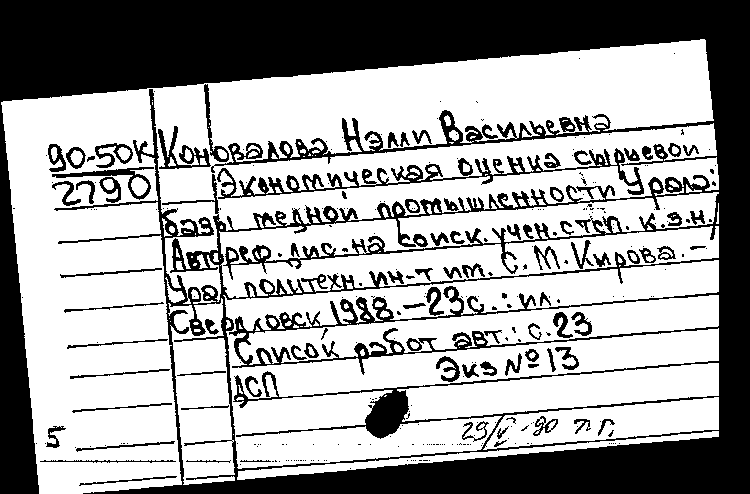 90-50К Коновалова, Нэлли Васильевна
2790 Экономическая оценка сырьевой
базы медной промышленности Урала:
Автореф. дис. на соиск. учен. степ. к.э.н./
Урал. политехн. ин-т им. С. М. Кирова. –
Свердловск, 1988. – 23 с. : ил.
Список работ авт.: с. 23
ДСП Экз № 13
5
29/V-90 г.